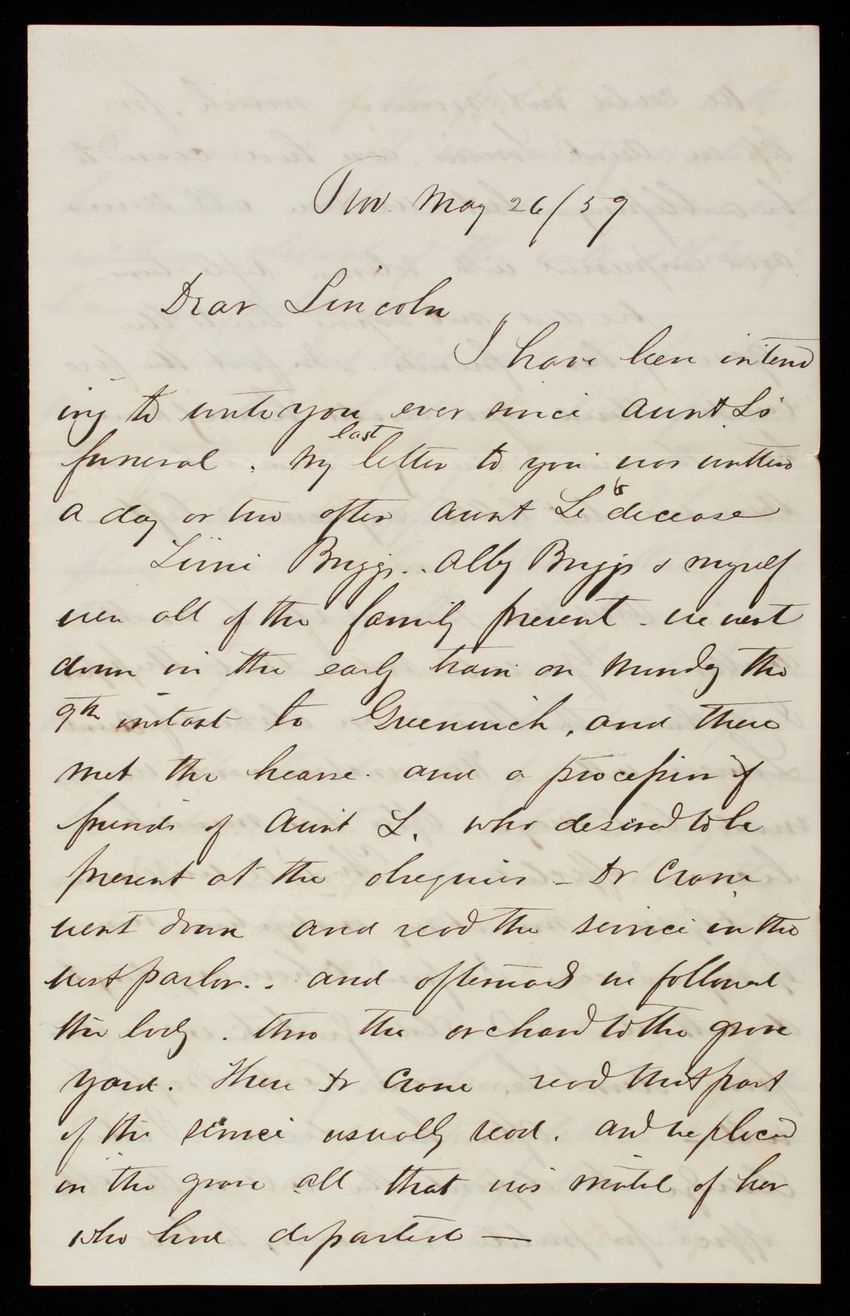 Prov. May 26/59
Dear Lincoln
I have been intend
ing to write you ever since Aunt L's
funeral. My last letter to you was written
a day or two after Aunt L's decease
Briggs.. Abby Briggs & myself
were all of the family present. We went
down in the early train on Monday the
9th instant to Greenwich, and there
met the hearse. and a procession of
friends of Aunt L. who desired to be
present at the obsequies - Dr Crane
went down and read the service in the
west parlor.. and afterward we followed
the body. thro the orchard to the grave
yard. There Dr Crane read that part
of the service usually read. and we placed
in the grave all that was mortal of her
who had departed —